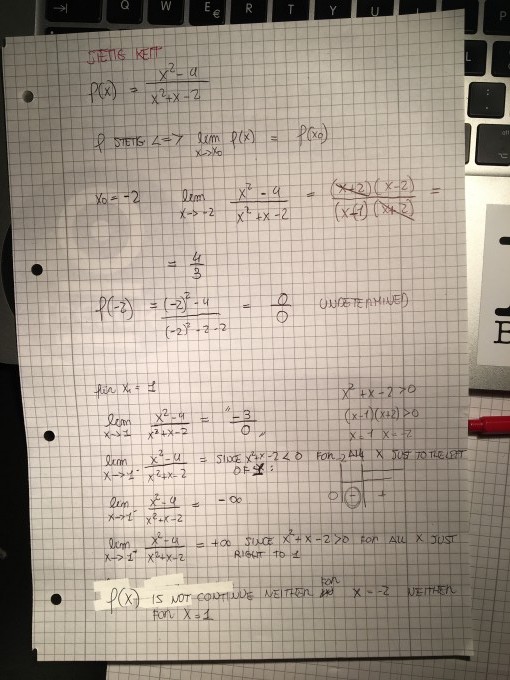 STETIG KEIT
f(x) = x²-4 / x²+x-2
f STETIG <=> lim x->x₀ f(x) = f(x₀)
x₀ = -2 lim x->-2 x²-4 / x²+x-2 = (x+2)(x-2) / (x-1)(x+2) =
= 4/3
f(-2) = (-2)²-4 / (-2)²-2-2 = 0/0 UNDETERMINED
für x₁ = 1
x²+x-2>0
(x-1)(x+2)>0
x=1 x=-2
lim x->1 x²-4 / x²+x-2 = "-3/0"
lim x->1⁻ x²-4 / x²+x-2 = SINCE x²+x-2<0 FOR ALL X JUST TO THE LEFT
OF 1:
0 - +
lim x->1⁻ x²-4 / x²+x-2 = -∞
lim x->1⁺ x²-4 / x²+x-2 = +∞ SINCE x²+x-2>0 FOR ALL X JUST
RIGHT TO 1
f(x) IS NOT CONTINUE NEITHER FOR x=-2 NEITHER
FOR X=1
Q W E € R T Y U
P
L